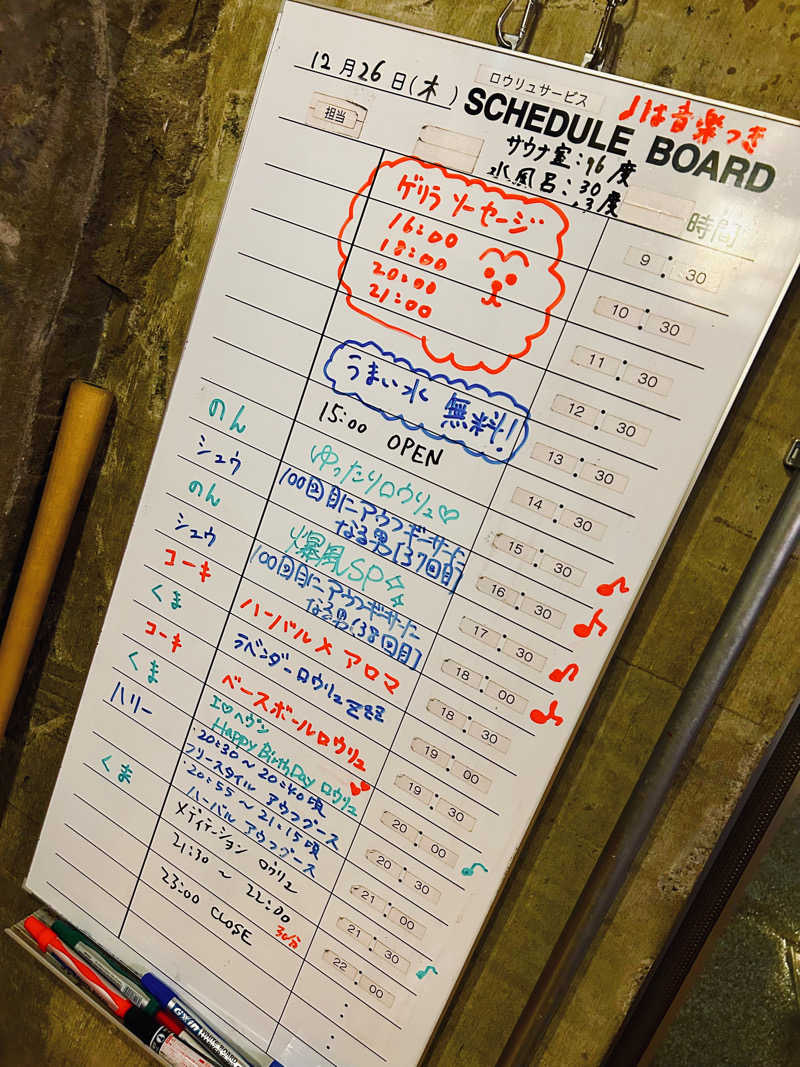 12月26日(木)
ロウリュサービス
SCHEDULE BOARD
♪は音楽つき
サウナ室:96度
水風呂:30
.3度
担当
時間
ゲリラ ソーセージ
16:00
18:00
20:00
21:00
うまい水 無料!
9:30
10:30
11:30
12:30
13:30
15:00 OPEN
14:30
のん ゆったりロウリュ♡ 15:30
シュウ 100回目にアウフギーサーに
なる男(37回目) 16:30 ♪
のん 爆風SP 17:30 ♪
シュウ 100回目にアウフギーサーに
なる男(38回目) 18:00 ♪
コーキ ハーバル×アロマ 18:30 ♪
くま ラベンダーロウリュ zzz 19:00
コーキ ベースボールロウリュ 19:30
くま I♡ヘヴン
Happy BirthDay ロウリュ 20:00
ハリー ・20:30〜20:40頃
フリースタイル アウフグース 20:30 ♪
・20:55〜21:15頃
ハーバル アウフグース 21:00
くま メディテーション ロウリュ 21:30 ♪
21:30 〜 22:00
30分
22:00
23:00 CLOSE